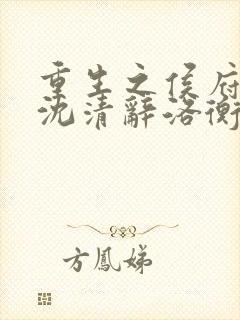 重生之侯府
沈清辭洛衡
方鳳娣